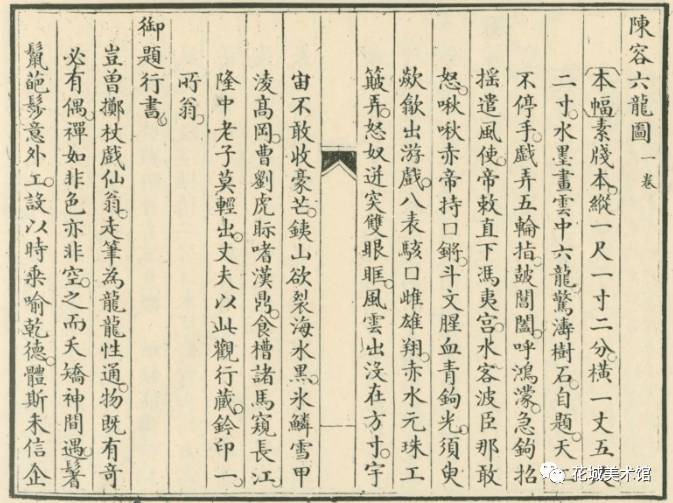 陳容六龍圖 一卷
本幅素牋本。縱一尺一寸二分。橫一丈五
二寸。水墨畫雲中六龍。驚濤樹石。自題。天
不停手。戲弄五輪指。皷閶闔。呼鴻濛。急鉤招
搖遣風使。帝敕直下馮夷宮。水客波臣那敢
怒。啾啾赤帝持口鏘。斗文腥血青鉤光。須臾
歘歙出游戲。八表駭口雌雄翔。赤水元珠工
簸弄。怒奴迸突雙眼眶。風雲出沒在方寸。宇
宙不敢收豪芒。銕山欲裂海水黑。氷鱗雪甲
淩高岡。曹劉虎眎嗜漢鼎。食槽諸馬窺長江。
隆中老子莫輕出。丈夫以此觀行藏。鈐印一。
所翁。
御題行書。
豈曾擲杖戲仙翁。走筆為龍龍性通。物既有奇
必有偶。禪如非色亦非空。之而夭矯神間遇。鬐
鬣葩髿意外工。設以時乘喻乾德。體斯未信企
花城美术馆